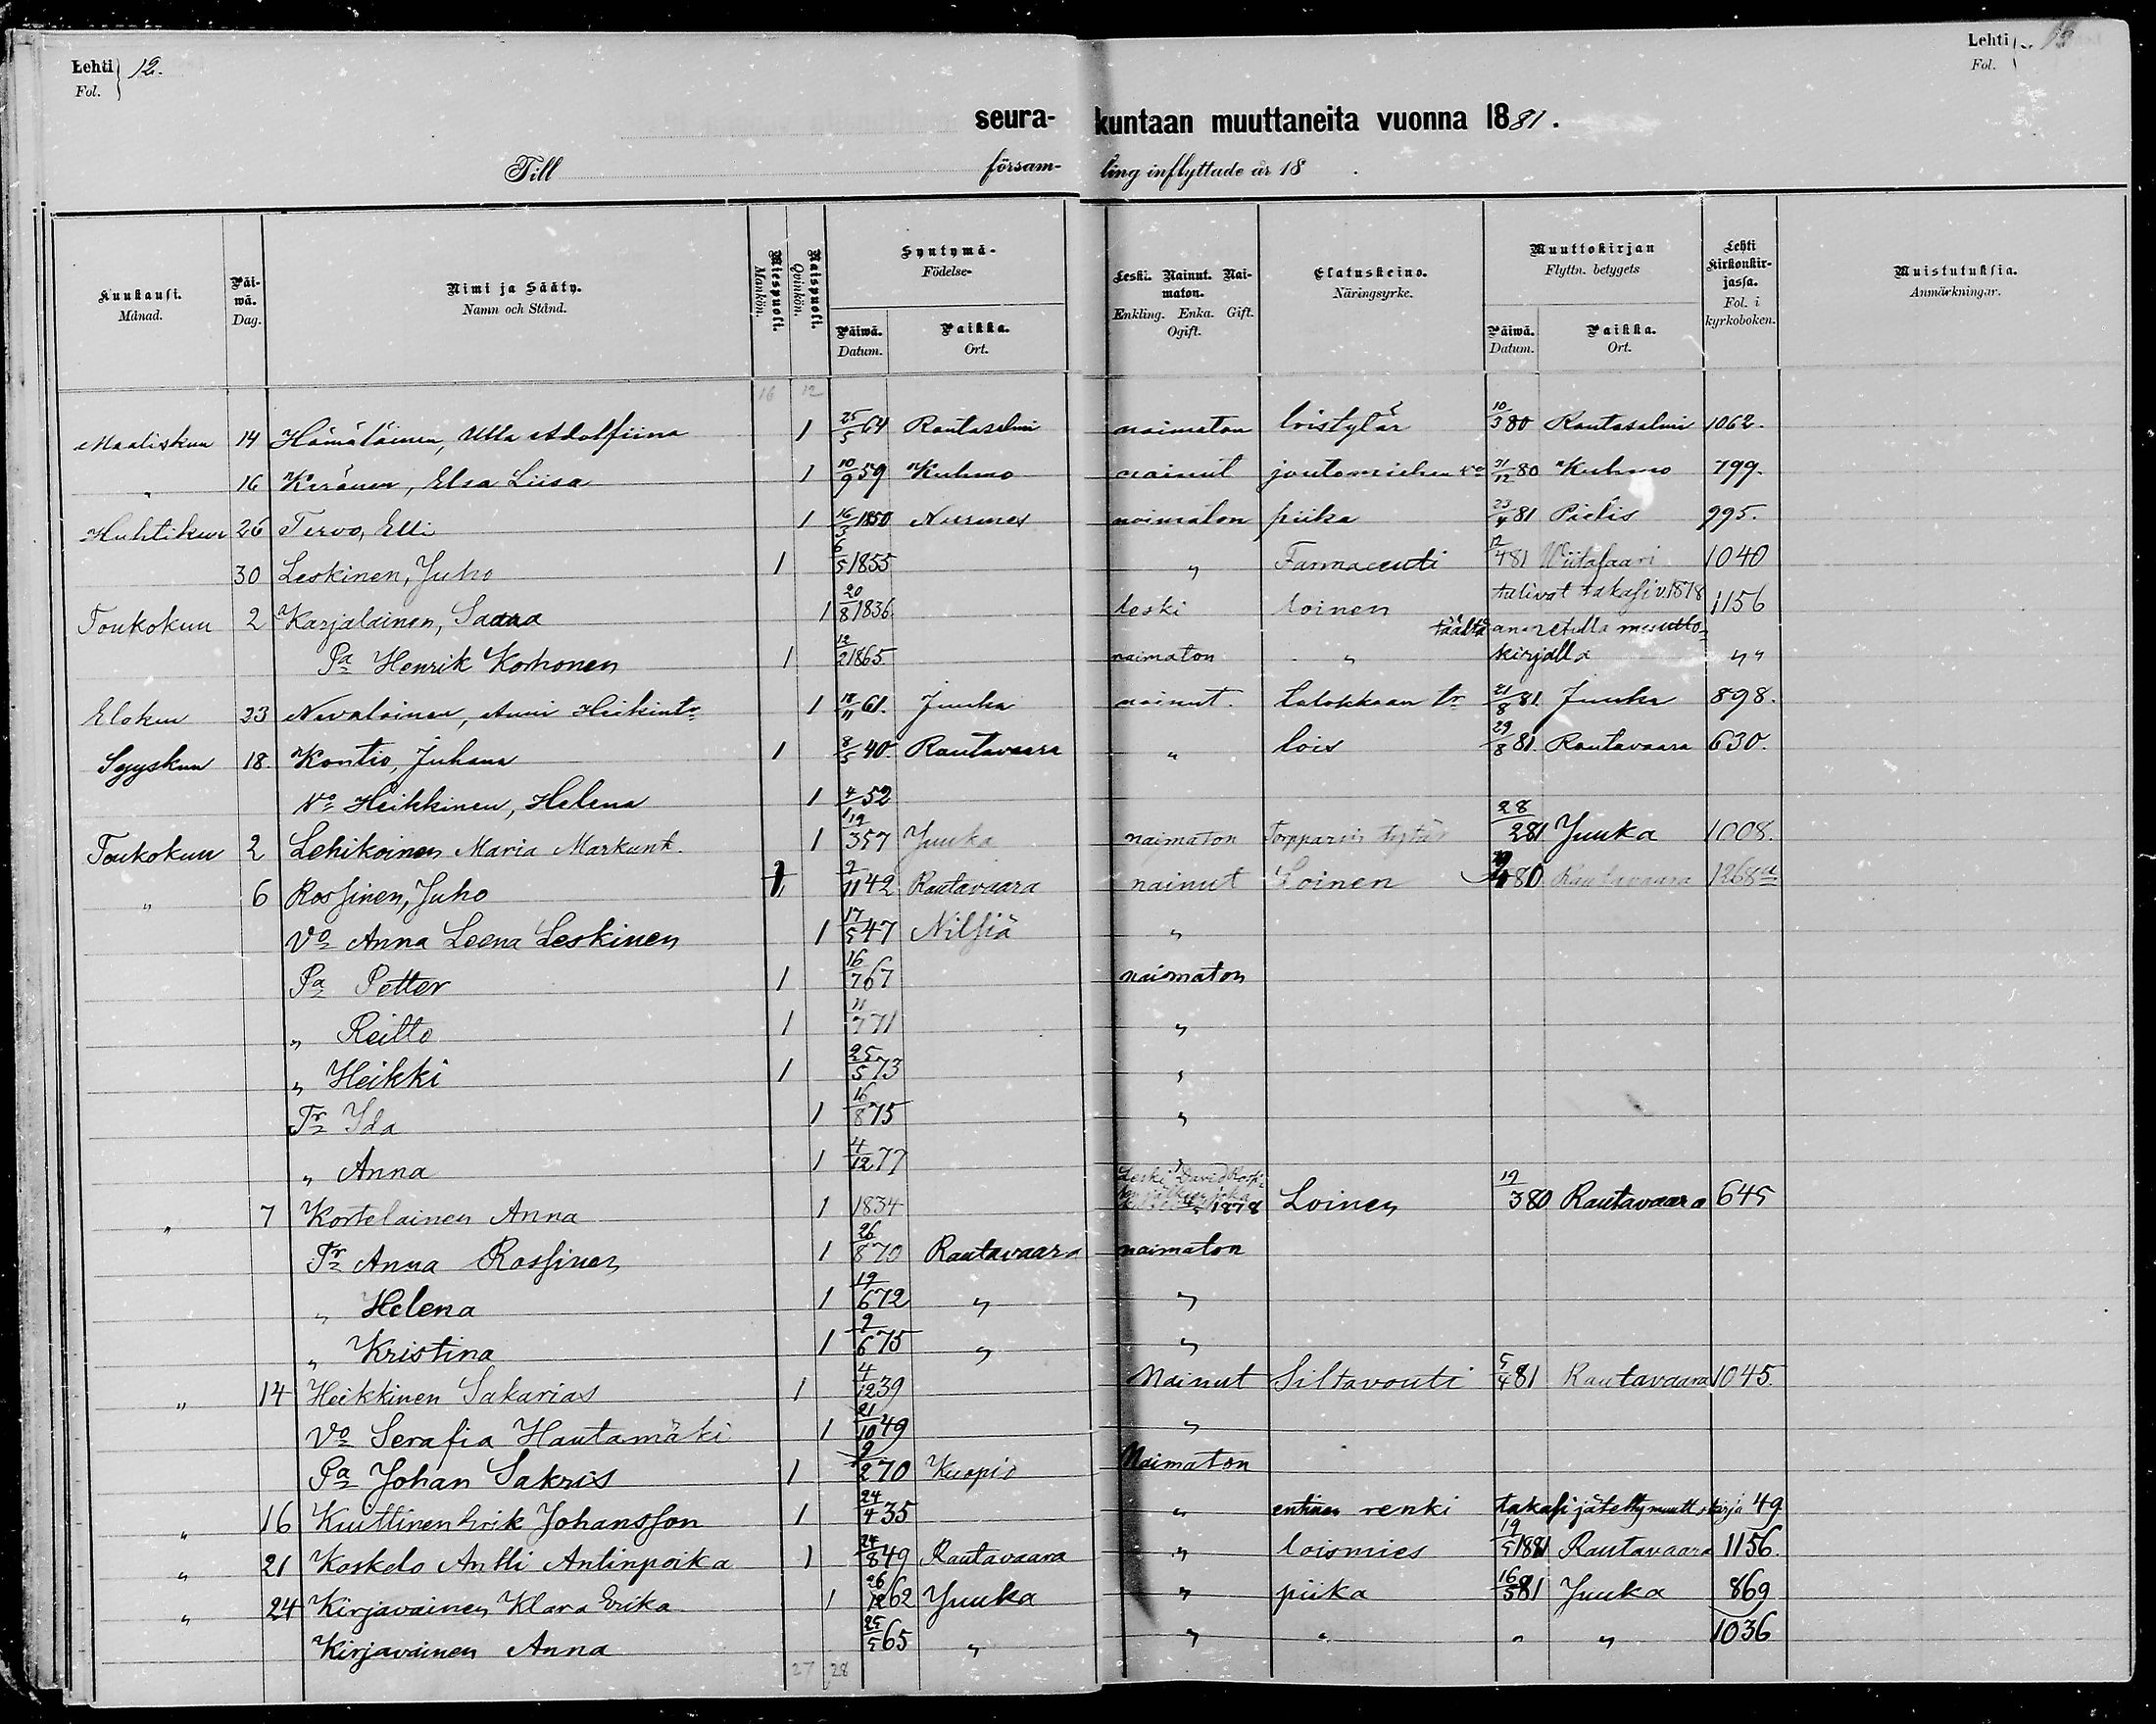 Lehti 12.
Fol.
Lehti 13
Fol.
seura- kuntaan muuttaneita vuonna 1881.
Till försam- ling inflyttade år 18 .
Kuukausi. Månad.
Päi-wä. Dag.
Nimi ja Sääty. Namn och Stånd.
Miespuoli. Mankön.
Naispuoli. Qvinkön.
Syntymä- Födelse-
Päiwä. Datum.
Paikka. Ort.
Leski. Nainut. Nai-maton. Enkling. Enka. Gift. Ogift.
Elatuskeino. Näringsyrke.
Muuttokirjan Flyttn. betygets
Päiwä. Datum.
Paikka. Ort.
Lehti Kirkonkir-jassa. Fol. i kyrkoboken.
Muistutuksia. Anmärkningar.
16 12
Maaliskuu 14 Hämäläinen, Ulla Adolfiina 1 25/5 64 Rautasalmi naimaton loistytär 10/3 80 Rautasalmi 1062.
" 16 Keränen, Elsa Liisa 1 10/9 59 Kuhmo nainut joutomiehen vo 31/12 80 Kuhmo 799.
Huhtikuu 26 Tervo, Elli 1 16/3 1850 Nurmes naimaton piika 23/4 81 Pielis 995.
30 Leskinen, Juho 1 6/5 1855 " Farmaceuti 12/4 81 Wiitasaari 1040
Toukokuu 2 Karjalainen, Saara 1 20/8 1836 leski loinen tulivat takasi v. 1878 1156
täältä annetulla muutto-
Pa Henrik Korhonen 1 12/2 1865. naimaton " kirjalla " "
Elokuu 23 Nevalainen, Anni Heikintr 1 18/11 61. Juuka nainut. talokkaan tr 21/8 81. Juuka 898.
Syyskuu 18. Kontio, Juhana 1 8/5 40. Rautavaara " lois 29/8 81. Rautavaara 630.
Vo Heikkinen, Helena 1 4/1 52
Toukokuu 2 Lehikoinen Maria Markunt. 1 19/3 57 Juuka naimaton Torpparin tytär 28/2 81 Juuka 1008.
" 6 Rossinen, Juho 1 2/11 42 Rautavaara nainut Loinen 80. Rautavaara 1268a
Vo Anna Leena Leskinen 1 17/5 47 Nilsiä "
Pa Petter 1 16/7 67 naimaton
" Reitto 1 11/7 71 "
" Heikki 1 25/5 73 "
Tr Ida 1 16/8 75 "
" Anna 1 4/12 77 "
" 7 Kortelainen Anna 1 1834 Leski David 1878 Loinen 19/3 80 Rautavaara 645
Tr Anna Rossinen 1 26/8 70 Rautavaara naimaton
" Helena 1 19/6 72 " "
" Kristina 1 2/6 75 " "
" 14 Heikkinen Sakarias 1 4/12 39 Nainut Siltavouti 5/4 81 Rautavaara 1045.
Vo Serafia Hautamäki 1 21/10 49 "
Pa Johan Sakris 1 9/2 70 Kuopio Naimaton
" 16 Kuittinen Erik Johansson 1 24/4 35 " entinen renki takasi jätetty muuttokirja 49
" 21 Koskelo Antti Antinpoika 1 24/8 49 Rautavaara " loismies 19/5 1881 Rautavaara 1156.
" 24 Kirjavainen Klara Erika 1 26/12 62 Juuka " piika 16/5 81 Juuka 869
Kirjavainen Anna 25/5 65 " " " " " 1036
27 28